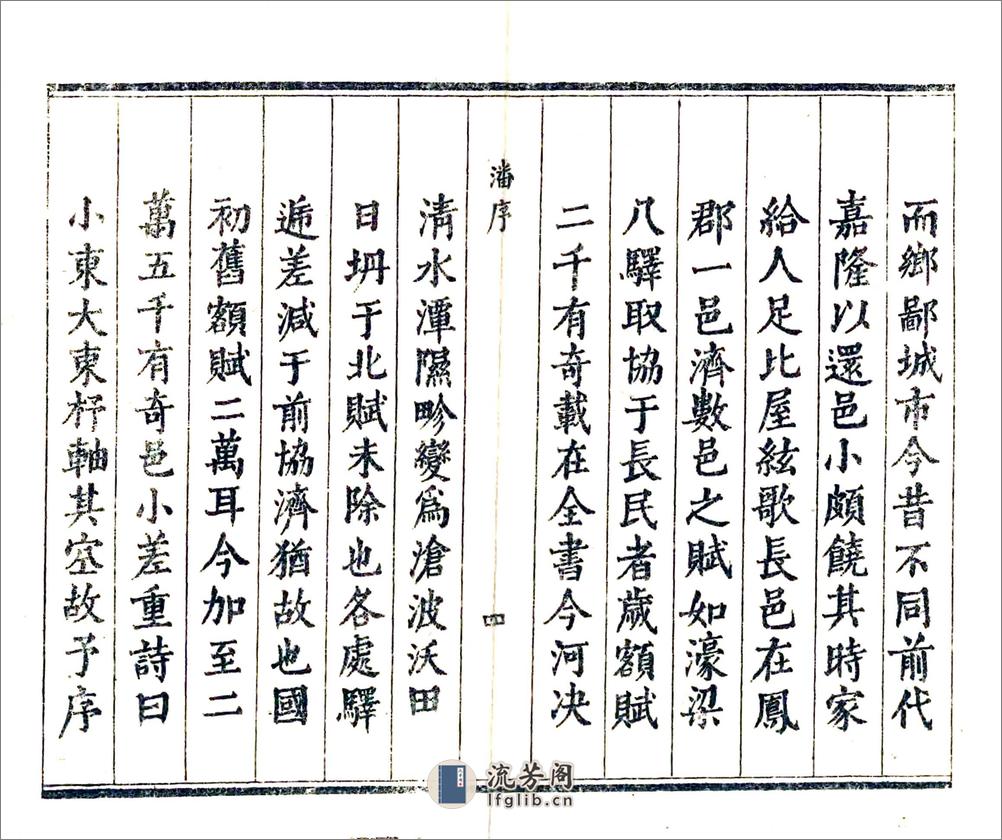 而鄉鄙城市今昔不同前代
嘉隆以還邑小頗饒其時家
給人足比屋絃歌長邑在鳳
郡一邑濟數邑之賦如濠梁
八驛取協于長民者歲額賦
二千有奇載在全書今河决
潘序
四
清水潭隰畛變爲滄波沃田
日坍于北賦未除也各處驛
遞差減于前協濟猶故也國
初舊額賦二萬耳今加至二
萬五千有奇邑小差重詩曰
小東大東杼軸其空故予序
流芳阁
lfglib.cn